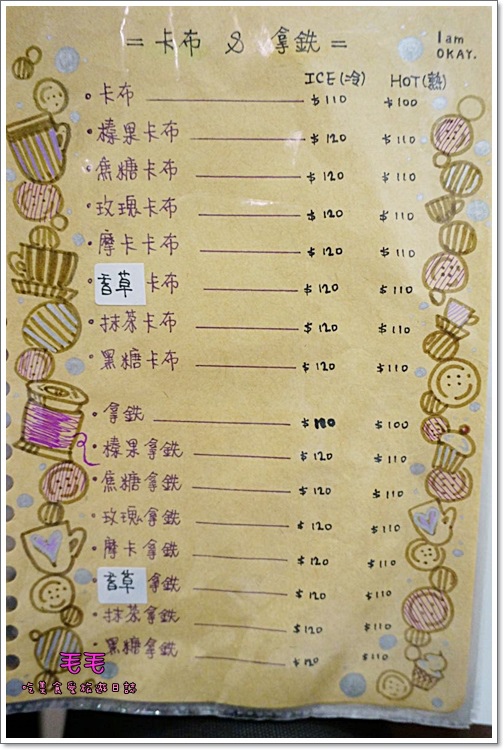 = 卡布 & 拿鉄 =
I am
OKAY.
ICE(冷) HOT(熱)
•卡布 $110 $100
•榛果卡布 $120 $110
•焦糖卡布 $120 $110
•玫瑰卡布 $120 $110
•摩卡卡布 $120 $110
•香草卡布 $120 $110
•抹茶卡布 $120 $110
•黑糖卡布 $120 $110
•拿鉄 $ $100
•榛果拿鉄 $120 $110
•焦糖拿鉄 $120 $110
•玫瑰拿鉄 $120 $110
•摩卡拿鉄 $120 $110
•香草拿鉄 $120 $110
•抹茶拿鉄 $120 $110
•黑糖拿鉄 $120 $110
毛毛
吃喜食愛旅遊日誌